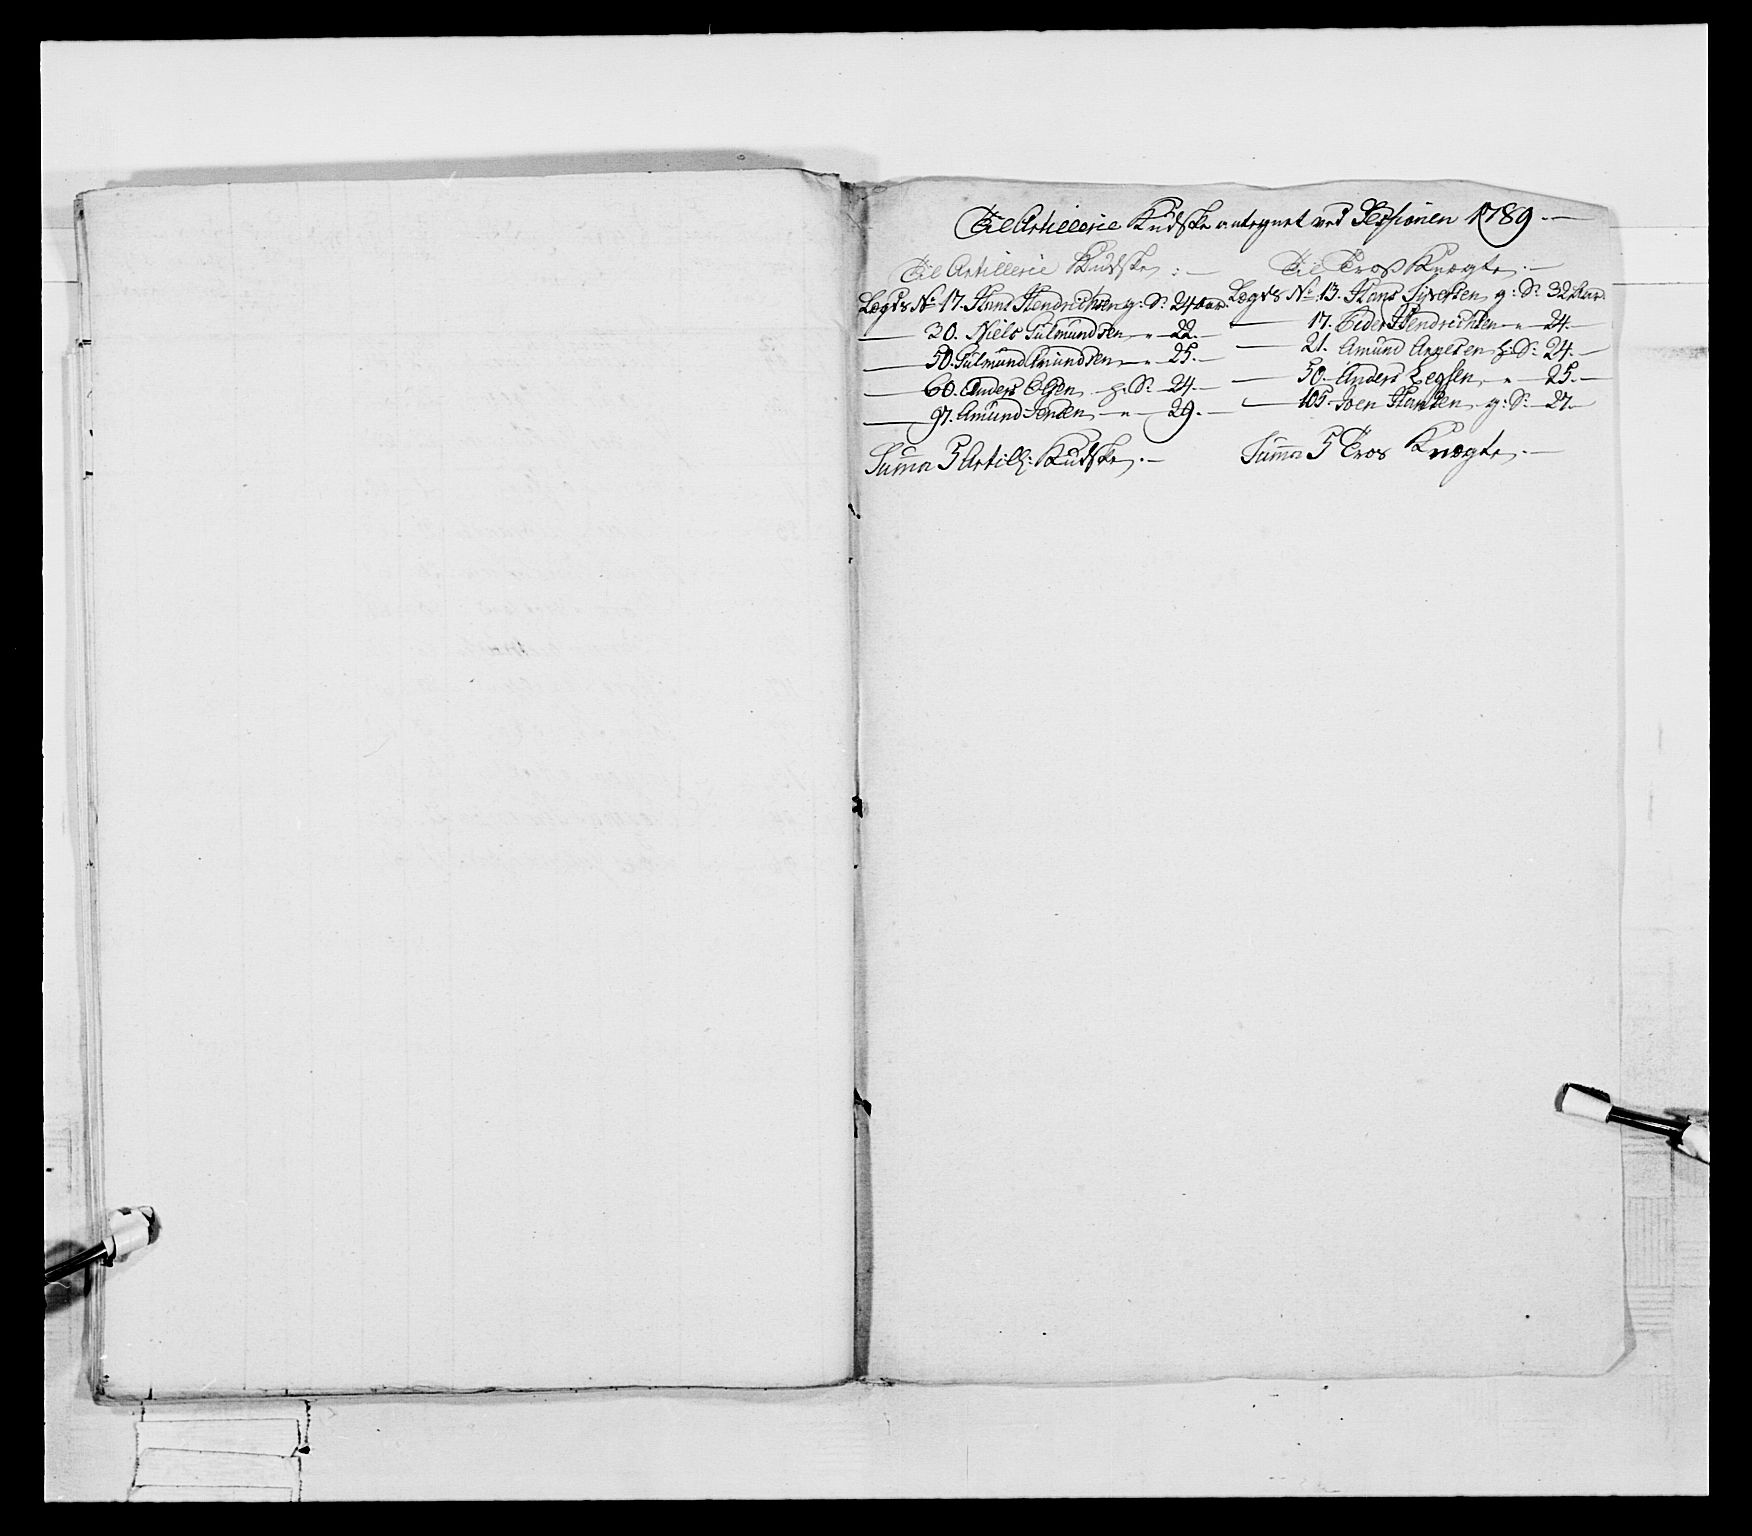 Til Artillerie Kudske antegnet ved Sessionen 1789.
Til Artillerie Kudske :
Lægds No 17. Hans Hendrichsen g: S: 24 Aar.
30. Niels Gulmundsen " 22.
50. Gulmund Amundsen " 25.
60. Anders Olsen g: S: 24.
97. Amund Jensen " 29.
Summa 5 Artill: Kudske.
Til Tros Knægte.
Lægds No 13. Hans Syversen g: S: 32 Aar.
17. Peder Hendrichsen " 24.
21. Amund Arnesen g: S: 24.
50. Anders " 25.
105. Joen Hansen g: S: 27.
Summa 5 Tros Knægte.